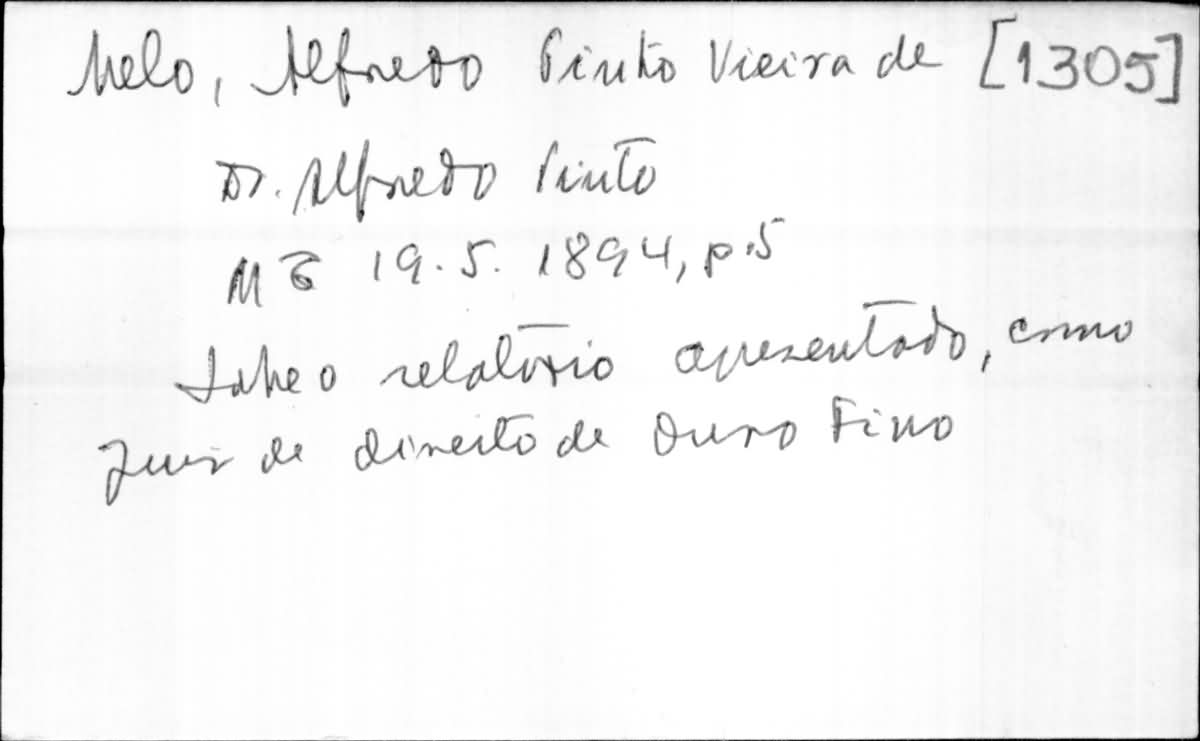 Melo, Alfredo Pinto Vieira de [1305]
Dr. Alfredo Pinto
MG 19.5.1894, p.5
Sobre o relatório apresentado, como
Juiz de direito de Ouro Fino